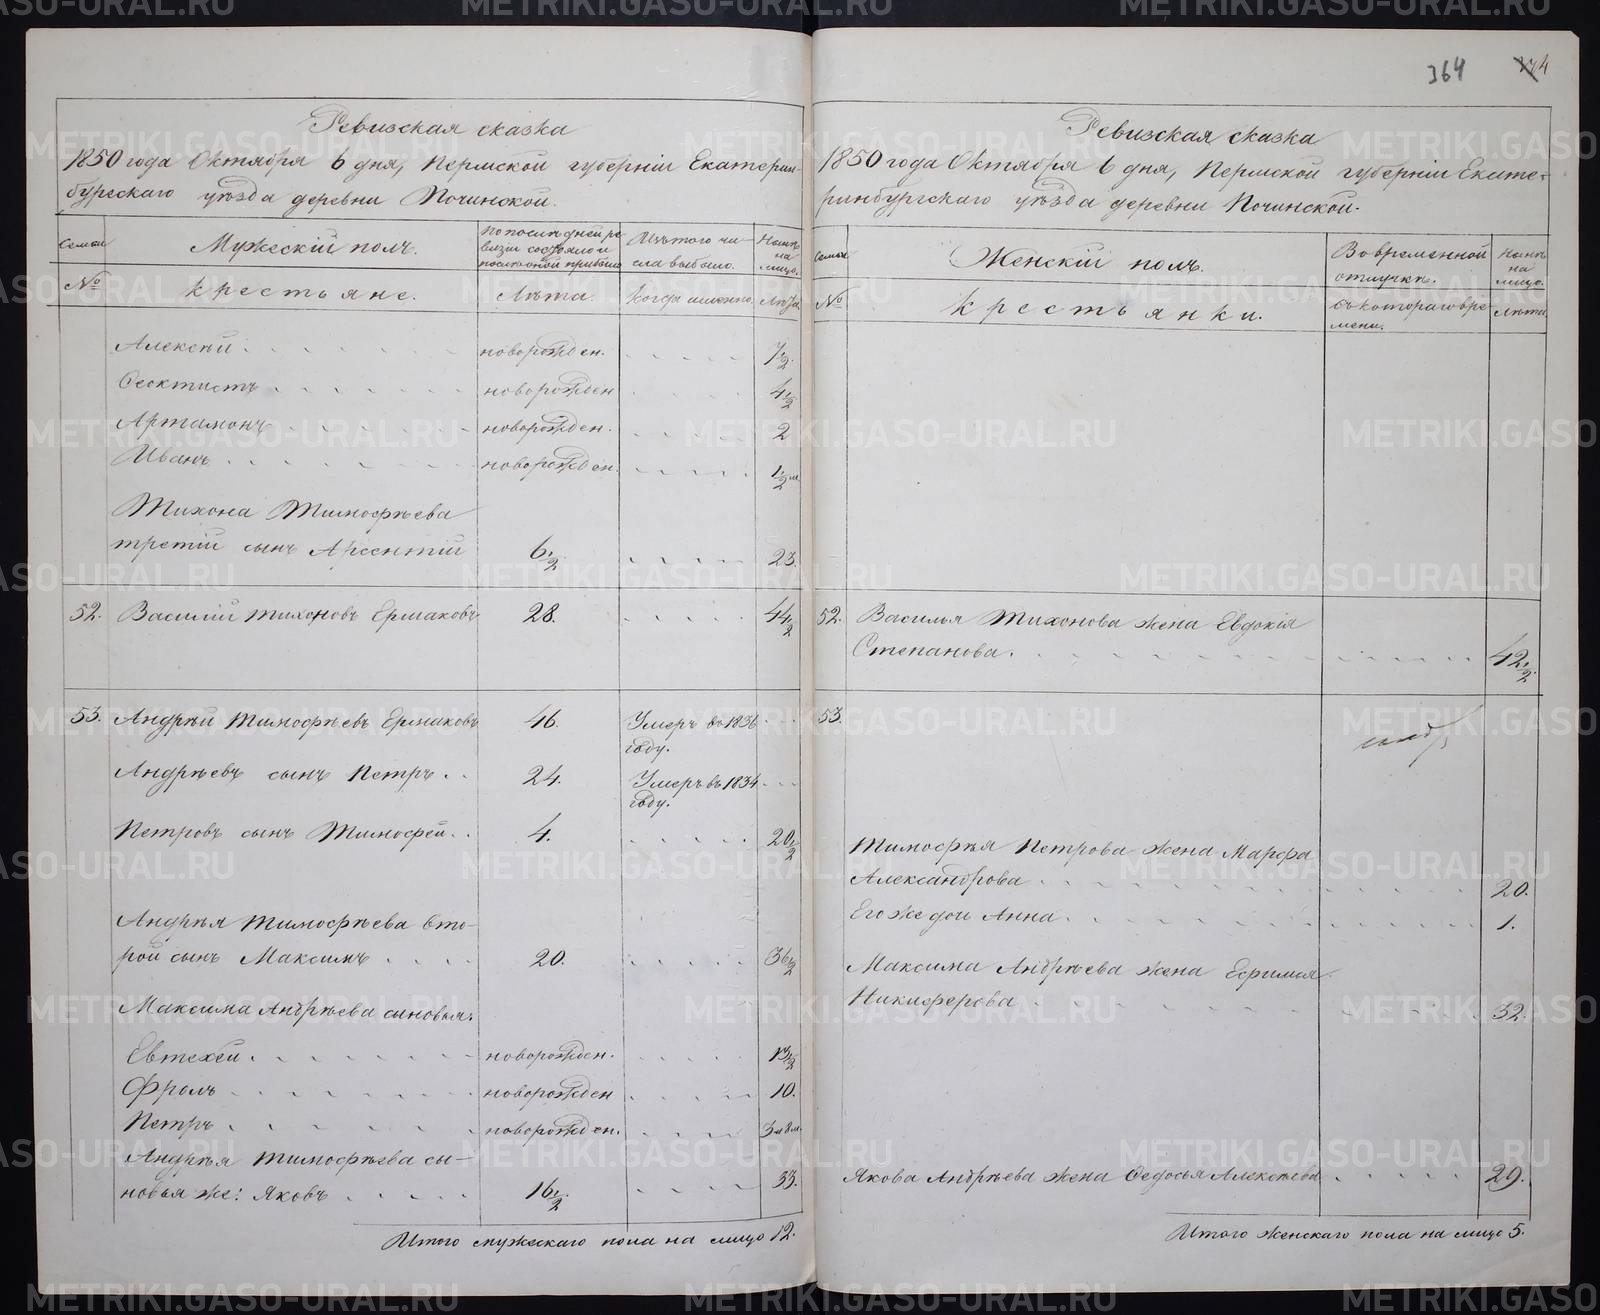 364
Ревизская сказка
1850 года Октября 6 дня, Пермской губерніи Екатерин-
бургскаго уѣзда деревни Починской.
Семьи
Мужескій полъ.
По послѣдней ре-
визіи состояло и
послѣ оной прибыло
Изъ того чи-
сла выбыло.
Нынѣ
на
лицо.
№
крестьяне.
Лѣта.
Когда именно.
Лѣта.
Алексѣй. новорожден. 7½.
Ѳеоктистъ новорожден 4½
Артамонъ новорожден. 2
Иванъ новорожден. ½ м
Тихона Тимофѣева
третій сынъ Арсентій 6½ 23.
52. Василій Тихоновъ Ермаковъ 28. 44½
53. Андрѣй Тимофѣевъ Ермаковъ 46. Умеръ въ 1836
году.
Андрѣевъ сынъ Петръ 24. Умеръ въ 1834
году.
Петровъ сынъ Тимофей 4. 20½
Андрѣя Тимофѣева вто-
рой сынъ Максимъ 20. 36½
Максима Андрѣева сыновья:
Евтехей. новорожден. 13½
Фролъ новорожден 10.
Петръ новорожден. 3 м
Андрѣя Тимофѣева сы-
новья же: Яковъ 16½ 33.
Итого мужескаго пола на лицо 12.
Ревизская сказка
1850 года Октября 6 дня, Пермской губерніи Екате-
ринбургскаго уѣзда деревни Починской.
Семьи
Женскій полъ.
Во временной
отлучкѣ.
Нынѣ
на
лицо.
№
крестьянки.
Съ котораго вре-
мени.
Лѣта
52. Василья Тихонова жена Евдокія
Степанова. 42½
53.
Тимофѣя Петрова жена Марфа
Александрова 20.
Его же дочь Анна. 1.
Максима Андрѣева жена Ефимья
Никиферова 32.
Якова Андрѣева жена Ѳедосья Алексѣева 29.
Итого женскаго пола на лицо 5.
METRIKI.GASO-URAL.RU